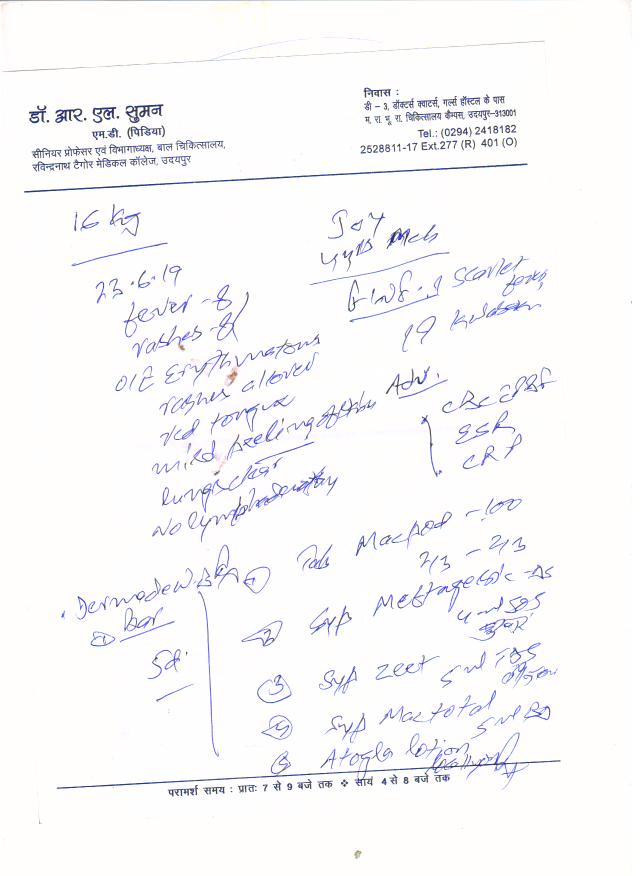 डॉ. आर. एल. सुमन
एम.डी. (पिडिया)
सीनियर प्रोफेसर एवं विभागाध्यक्ष, बाल चिकित्सालय,
रविन्द्रनाथ टैगोर मेडिकल कॉलेज, उदयपुर
निवास :
डी – 3, डॉक्टर्स क्वाटर्स, गर्ल्स हॉस्टल के पास
म. रा. भू. रा. चिकित्सालय कैम्पस, उदयपुर–313001
Tel.: (0294) 2418182
2528811-17 Ext.277 (R) 401 (O)
16 kg
23.6.19
fever -
rashes -
O/E Erythmatous
rashes allover
red tongue
mild peeling of skin
lungs clear
No lymphadenopathy
scarlet
fever
Adv.
ESR
CRP
① Tab Macpod - 100
2/3 - 2/3
② Syp Meftagesic - DS
4 ml SOS
③ Syp Zeet 5 ml TDS
④ Syp Mactotal 5 ml BD
⑤ Atogla lotion
Dermadew
① bar
परामर्श समय : प्रातः 7 से 9 बजे तक ❖ सायं 4 से 8 बजे तक